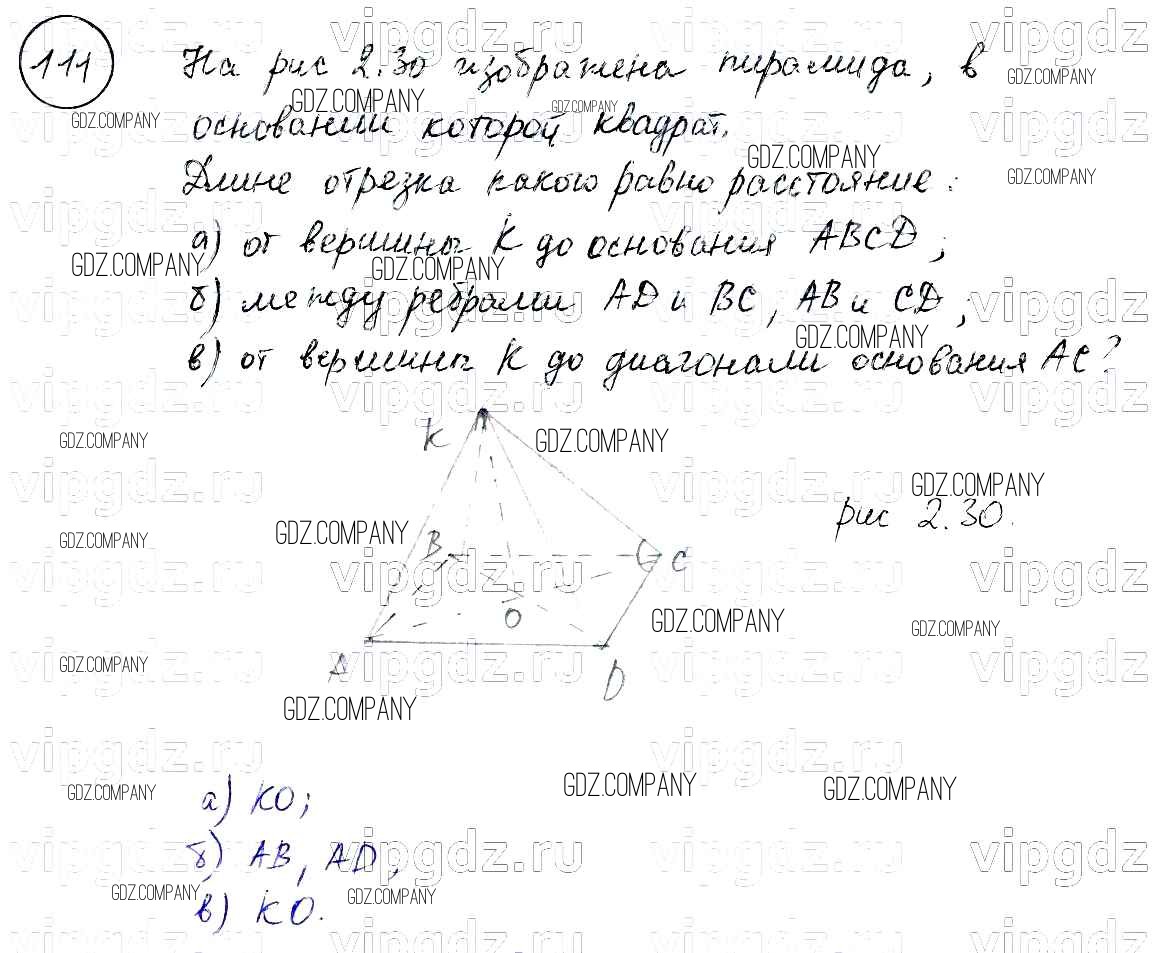 111 На рис 2.30 изображена пирамида, в
основании которой квадрат.
Длине отрезка какого равно расстояние:
а) от вершины К до основания ABCD;
б) между ребрами AD и BC, AB и CD;
в) от вершины К до диагонали основания AC?
K
B
C
O
A
D
рис 2.30.
а) KO;
б) AB, AD,
в) KO.
vipgdz.ru
GDZ.COMPANY